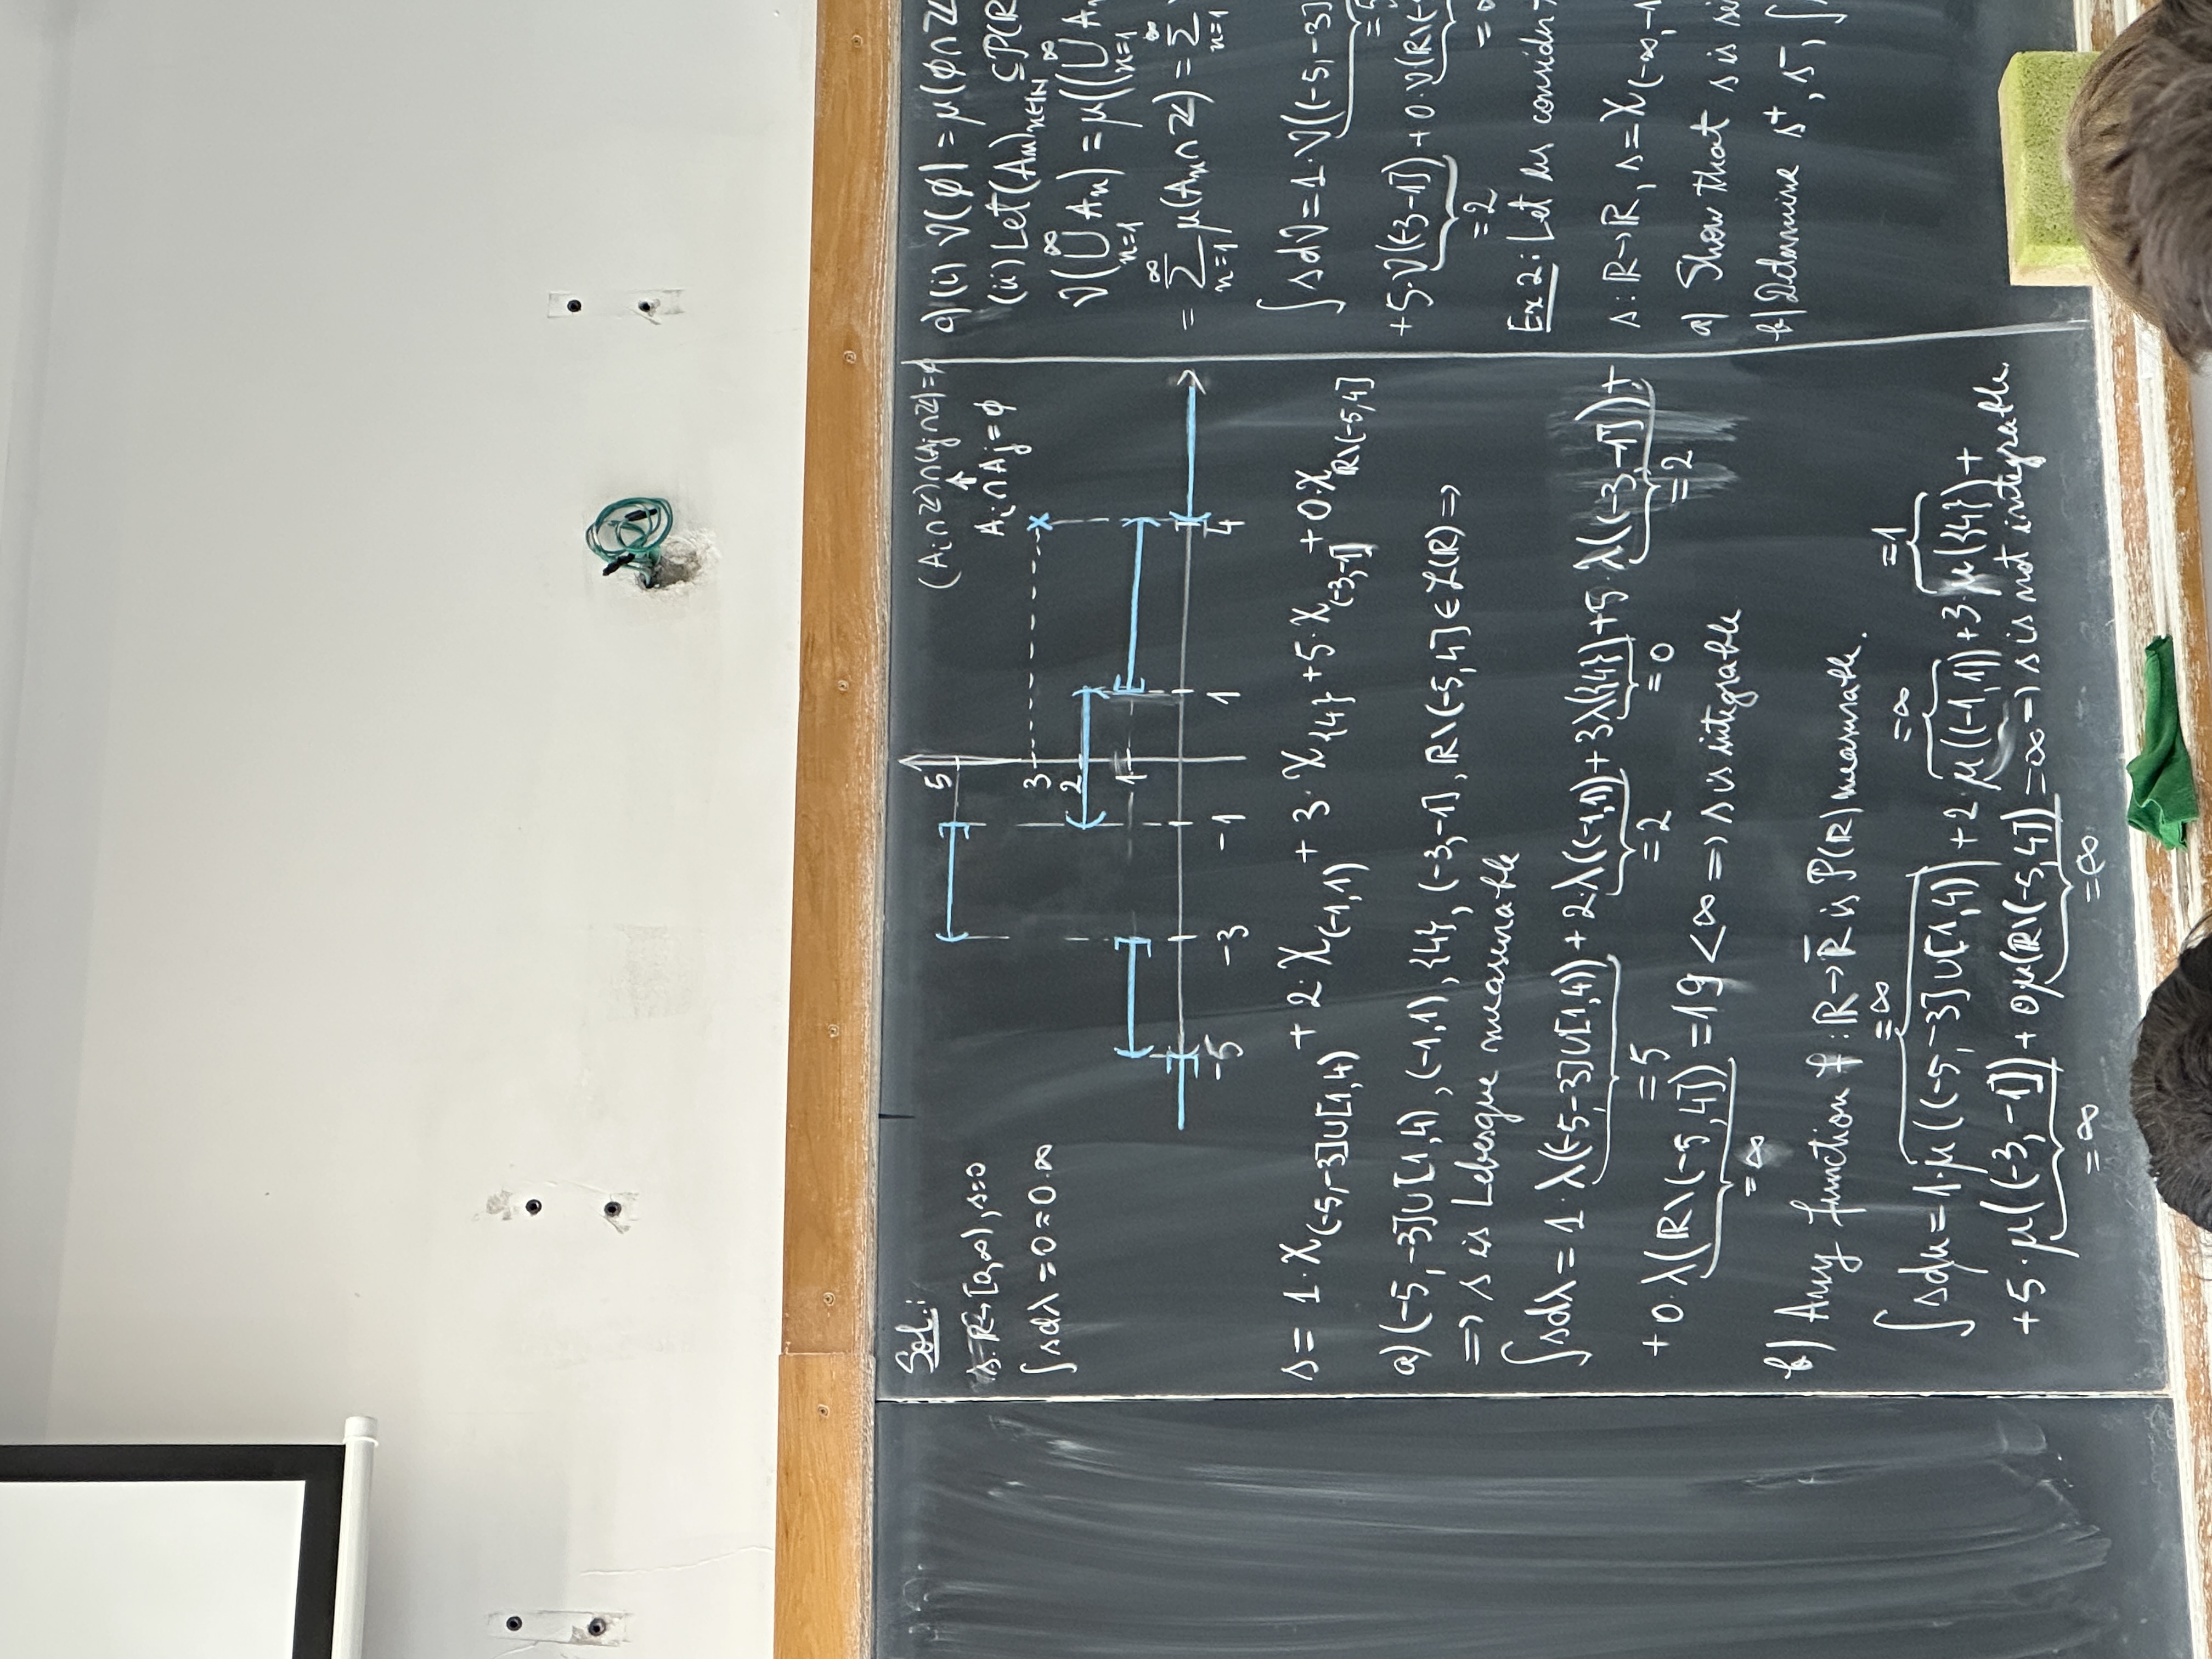 Sol.:
s: R→[0,∞), s=0
∫sdλ=0=0·∞
5
3
2
1
-5 -3 -1 1 4
(Ai∩Z)∩(Aj∩Z)=∅
↑
Ai∩Aj=∅
s= 1·χ(-5,-3]∪[1,4) + 2·χ(-1,1) + 3·χ{4} +5·χ(-3,-1] +0·χR\(-5,4]
a) (-5,-3]∪[1,4), (-1,1), {4}, (-3,-1], R\(-5,4] ∈ ℒ(R) =>
=> s is Lebesgue measurable
∫sdλ= 1·λ((-5,-3]∪[1,4)) + 2·λ((-1,1)) + 3λ({4}) +5·λ((-3,-1]) +
=5 =2 =0 =2
+0·λ(R\(-5,4]) =19 <∞ => s is integrable
=∞
b) Any function f: R→R̄ is P(R) measurable.
=∞ =∞ =1
∫sdμ=1·μ((-5,-3]∪[1,4)) +2·μ((-1,1)) +3·μ({4}) +
+5·μ((-3,-1]) + 0μ(R\(-5,4]) =∞ => s is not integrable.
=∞ =∞
c) (i) ν(∅) = μ(∅∩Z
(ii) Let (An)n∈N ⊆P(R
ν(∞⋃n=1 An) = μ((∞⋃n=1 A
= ∞∑n=1 μ(An∩Z) = ∞∑n=1
∫sdν=1·ν((-5,-3]
+5·ν((-3,-1]) + 0·ν(R\(-
=2
Ex 2: Let us consider
s: R→R, s=χ(-∞,-1
a) Show that s is si
b) Determine s⁺, s⁻, ∫